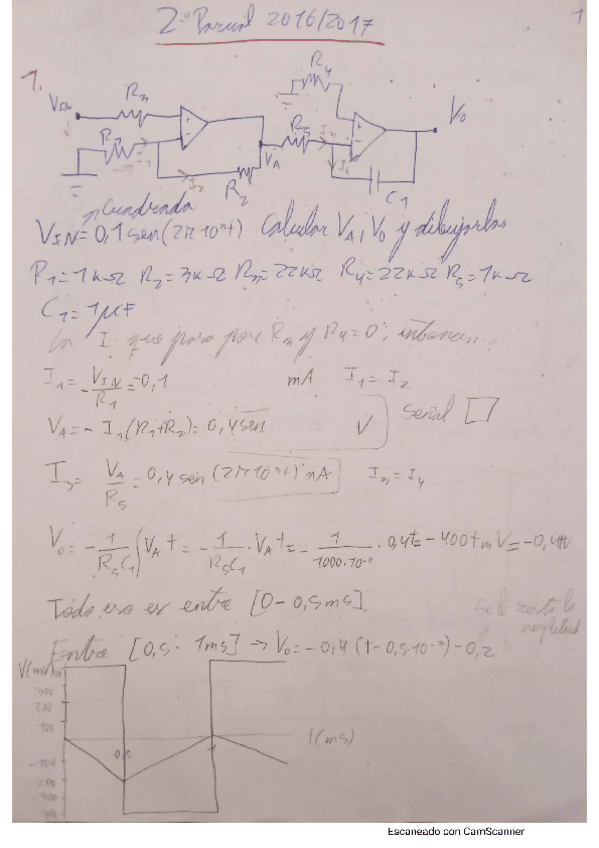 2º Parcial 2016/2017
1
1.
R4
VIN R3
V0
R1 I1 I2 R2 VA R5 I3 I4 C1
Cuadrada
VIN = 0,1 sen(2π10³t) Calcular VA, V0 y dibujarlas
R1=1kΩ R2=3kΩ R3=22kΩ R4=22kΩ R5=1kΩ
C1=1μF
La I que pasa por R3 y R4=0; entonces...
I1 = -VIN/R1 = -0,1 mA I1=I2
VA = -I1(R1+R2) = 0,4 sen V señal
I3 = VA/R5 = 0,4 sen(2π10³t) mA I3=I4
V0 = -1/(R5C1) ∫VA t = -1/(R5C1) · VA t = -1/(1000·10⁻⁶) · 0,4t = -400t mV = -0,4tV
Todo eso es entre [0-0,5ms].
se le resta la amplitud
Entre [0,5 - 1ms] → V0 = -0,4(t-0,5·10⁻³)-0,2
V(mV)
300
200
100
0,5 1 t(ms)
-100
-200
-300
400
Escaneado con CamScanner